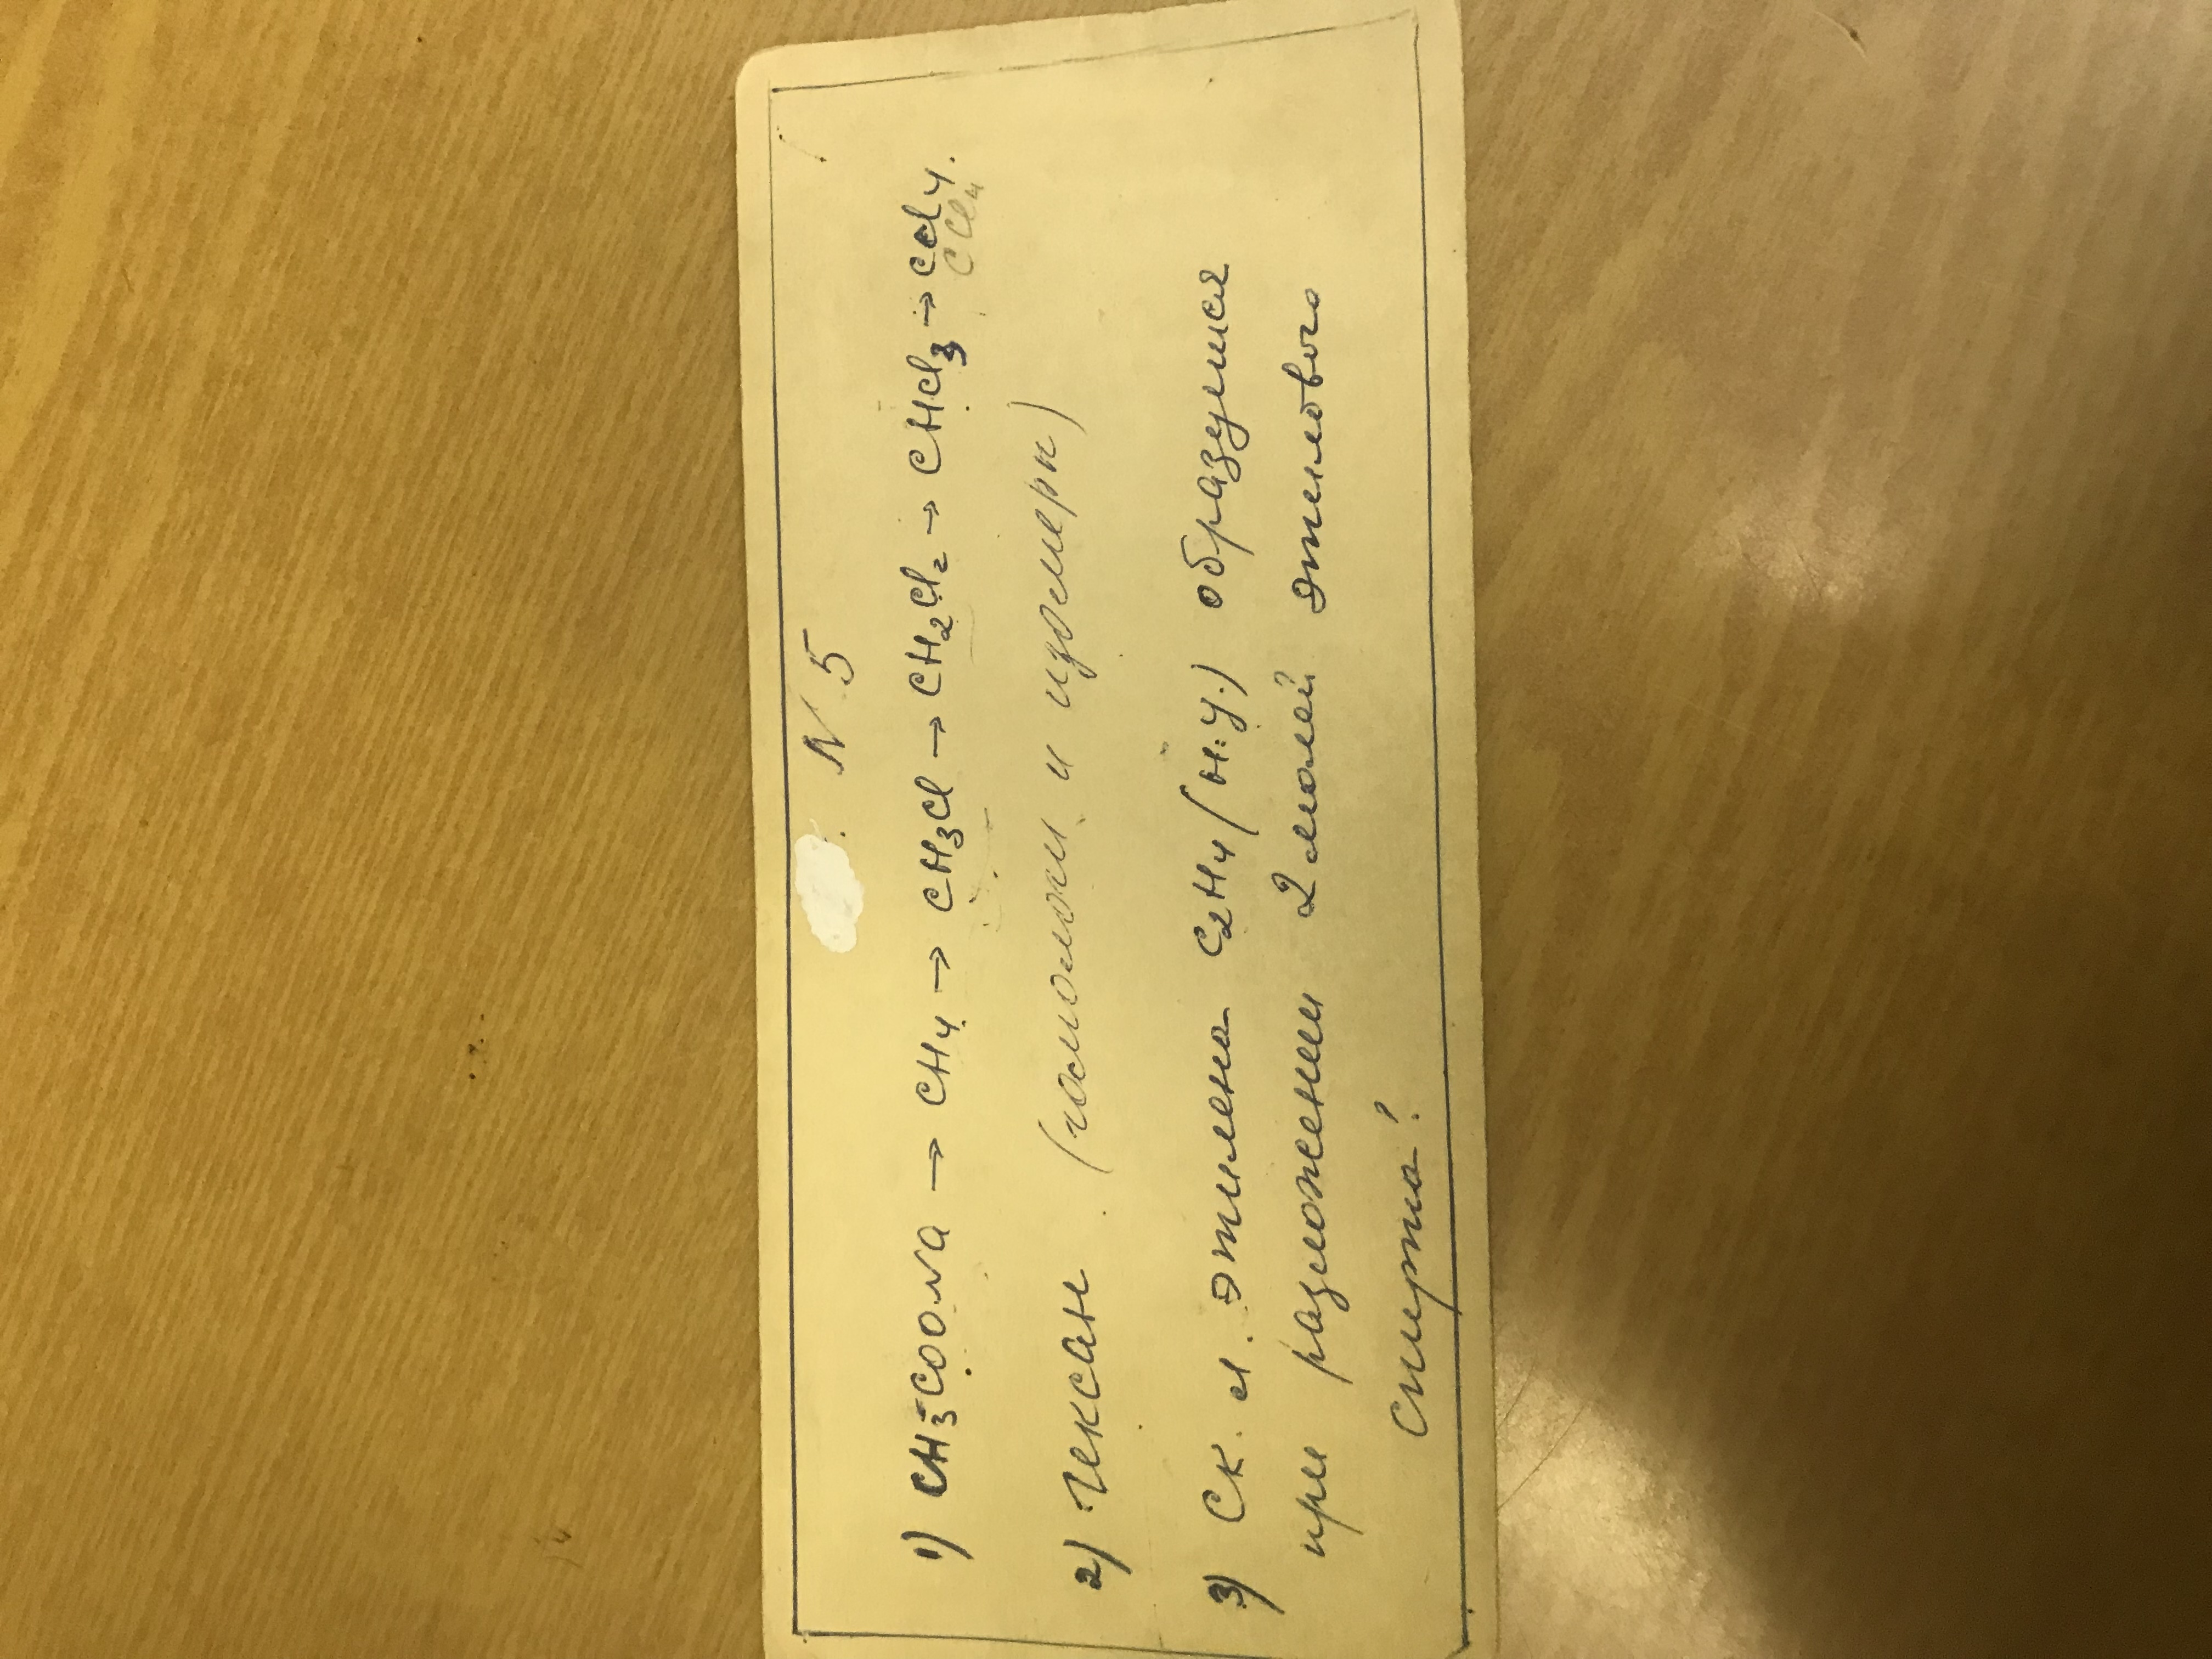 N 5
1) CH₃COONa → CH₄ → CH₃Cl → CH₂Cl₂ → CHCl₃ → CCl₄.
CCl₄
2) гексан (гомологи и изомеры)
3) Ск. л. этилена C₂H₄ (н.у.) образуется
при разложении 2 молей этилового
спирта?